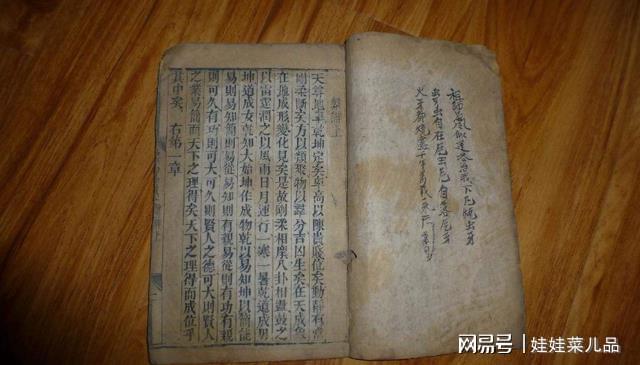 祖師
繫辭上
天尊地卑乾坤定矣卑高以陳貴賤位矣動靜有常
剛柔斷矣方以類聚物以羣分吉凶生矣在天成象
在地成形變化見矣是故剛柔相摩八卦相盪鼓之
以雷霆潤之以風雨日月運行一寒一暑乾道成男
坤道成女乾知大始坤作成物乾以易知坤以簡能
易則易知簡則易從易知則有親易從則有功有親
則可久有功則可大可久則賢人之德可大則賢人
之業易簡而天下之理得矣天下之理得而成位乎
其中矣 右第一章
网易号 娃娃菜儿品